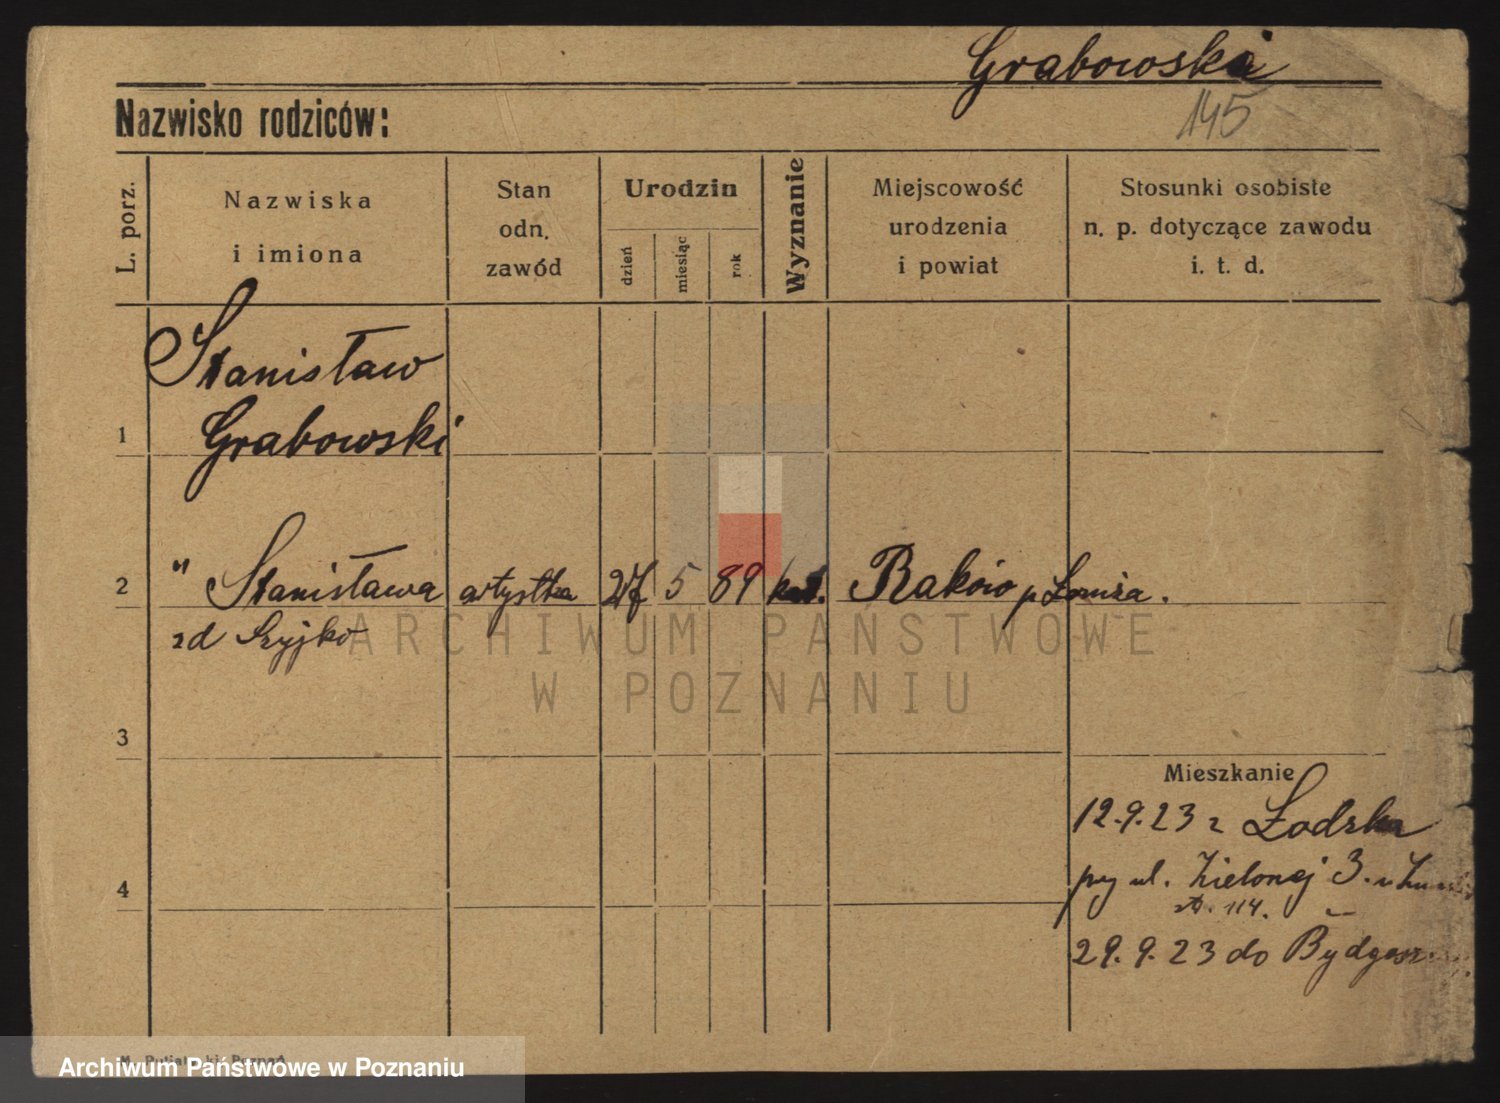 Grabowski
145
Nazwisko rodziców:
L. porz.
Nazwiska
i imiona
Stan
odn.
zawód
Urodzin
dzień
miesiąc
rok
Wyznanie
Miejscowość
urodzenia
i powiat
Stosunki osobiste
n. p. dotyczące zawodu
i. t. d.
Stanisław
1 Grabowski
2 " Stanisława artystka 27 5 89 kat. Raków p Łomża.
zd Szyjko
ARCHIWUM PAŃSTWOWE
W POZNANIU
3
Mieszkanie
12.9.23 z Łodzka
py ul. Zielonej 3.
114.
4
29.9.23 do Bydgosz
Archiwum Państwowe w Poznaniu